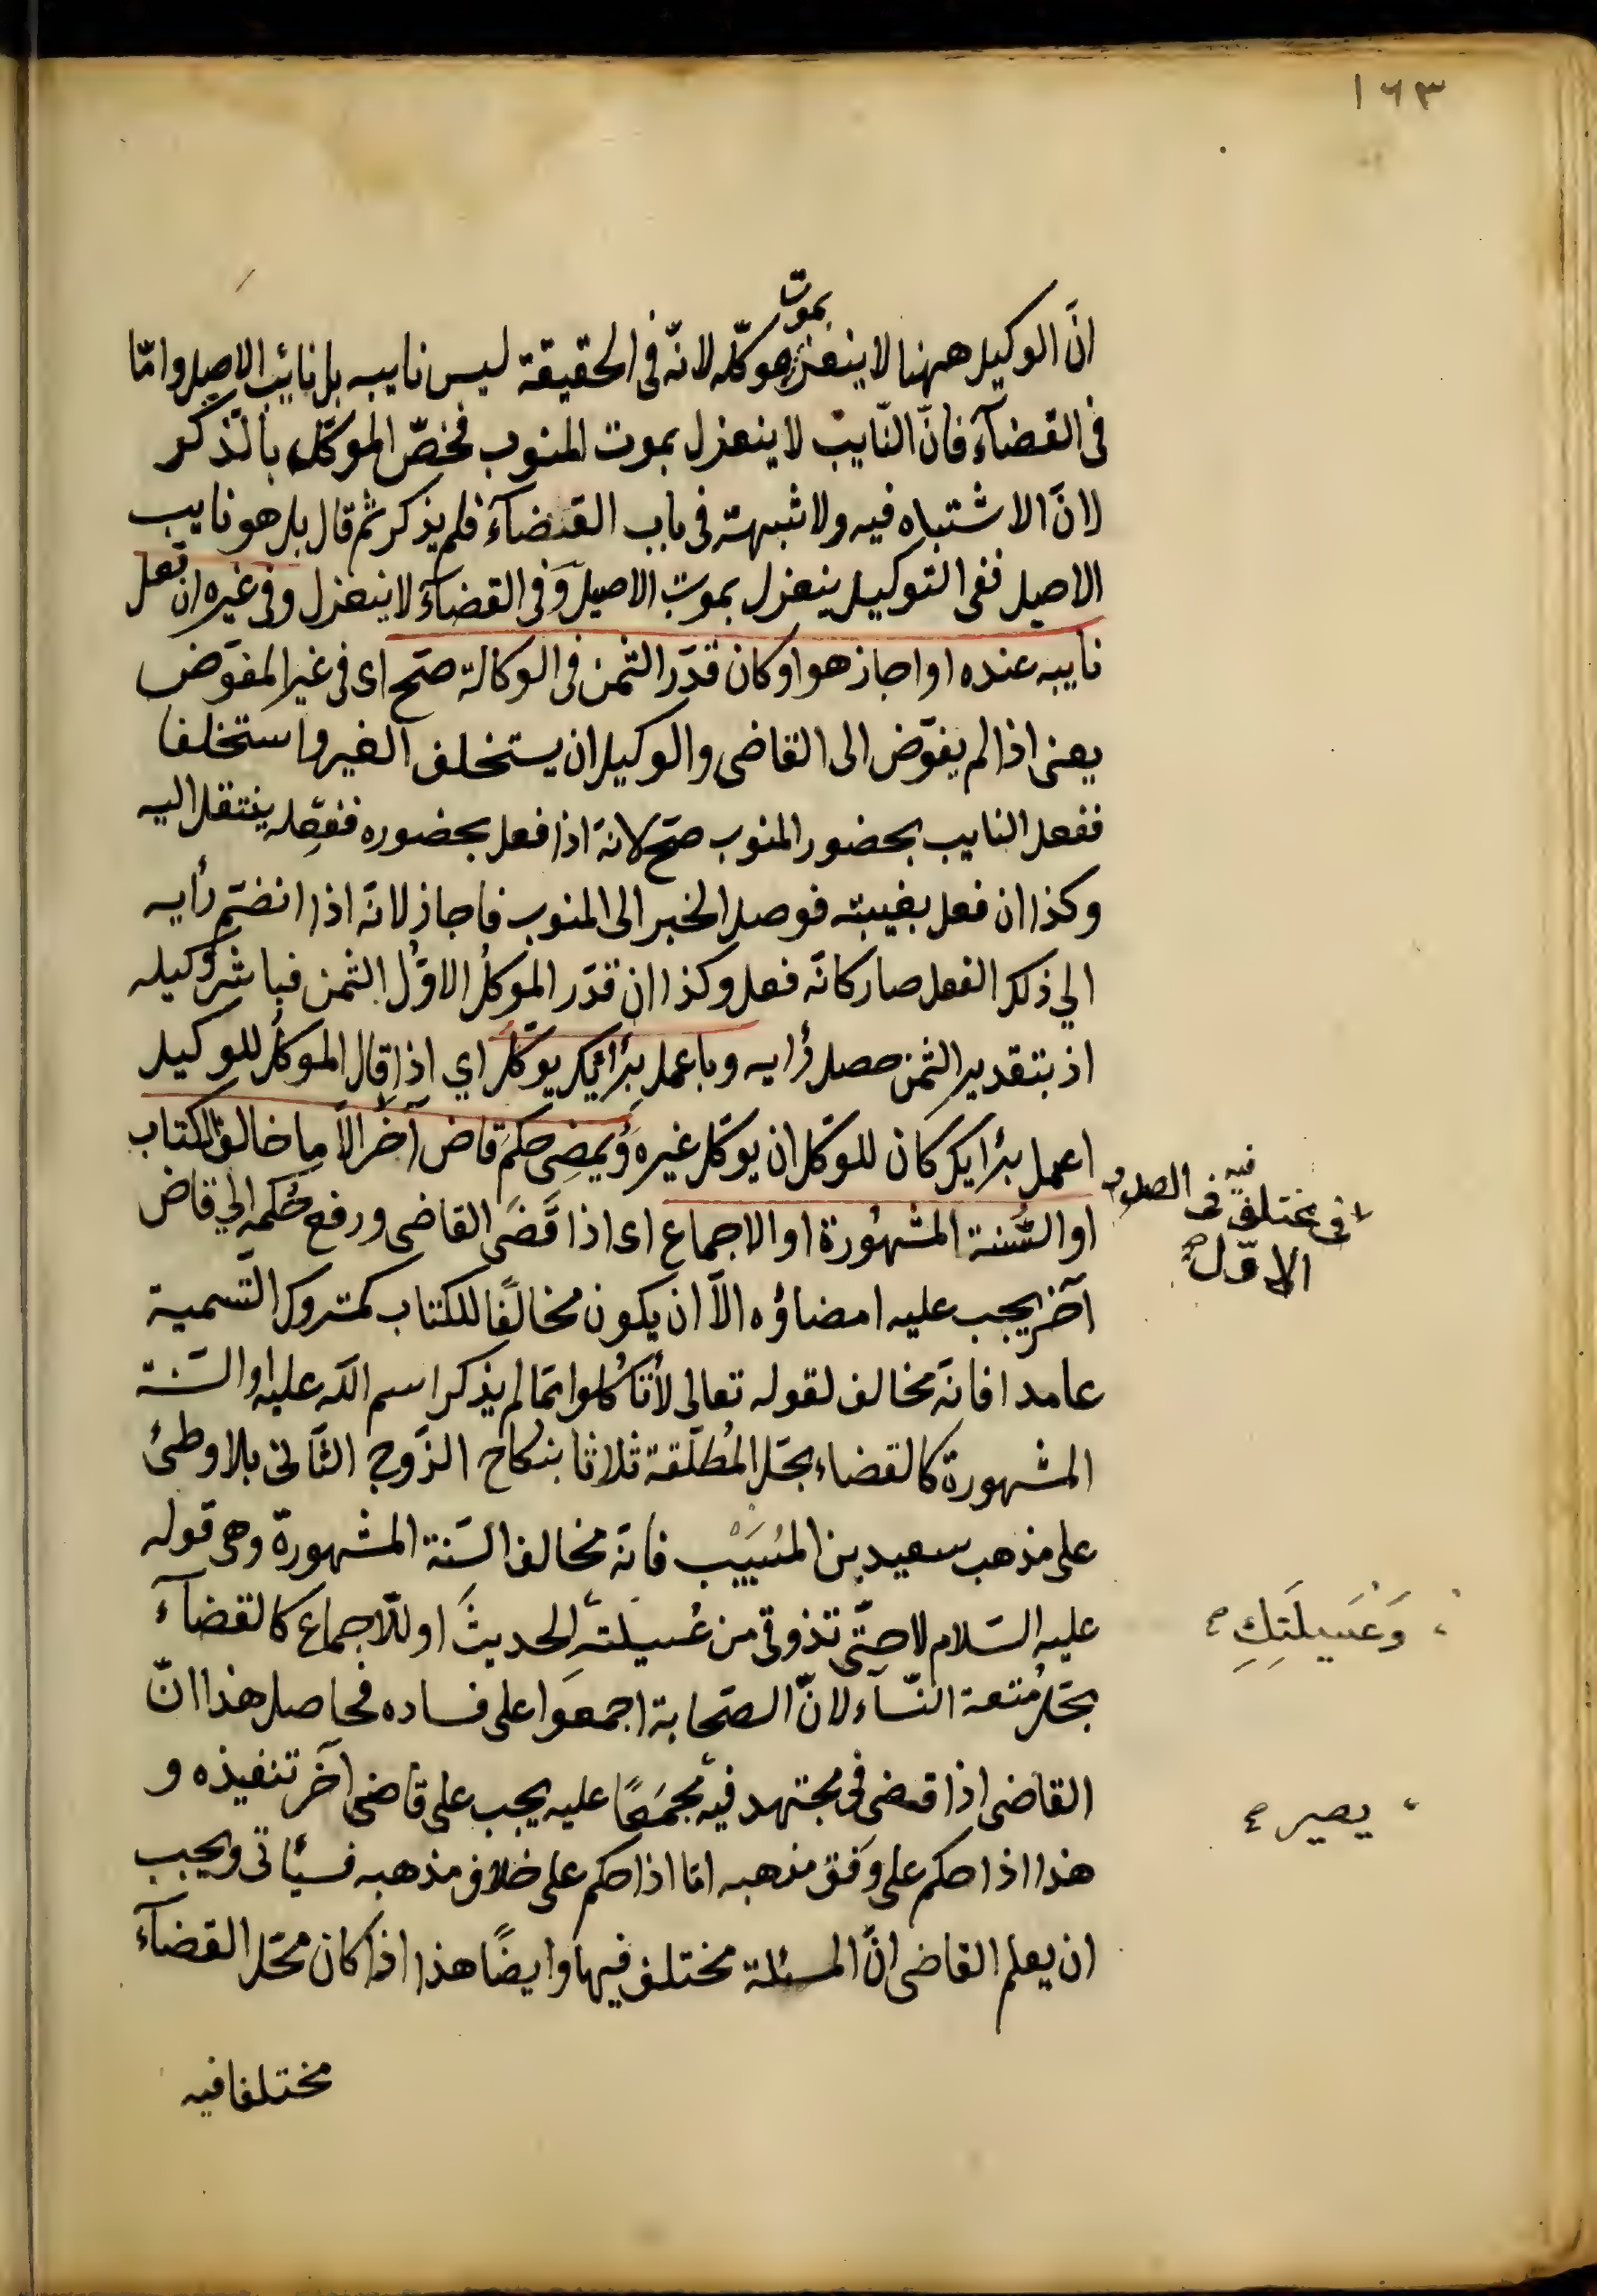 ١٦٣
بموت
انّ الوكيل ههنا لا ينعزل موكّله لانّه فى الحقيقة ليس نايبه بل نائب الاصيل وامّا
فى القضآء فانّ النّايب لا ينعزل بموت المنوب فخصّ الموكّل بالذّكر
لانّ الاشتباه فيه ولا شبهة فى باب القضآء فلم يذكر ثم قال بل هو نايب
الاصيل ففى التوكيل ينعزل بموت الاصيل وفى القضآء لا ينعزل وفى غيره ان فعل
نايبه عنده او اجاز هو او كان قدّر الثمن فى الوكالة صحّ اى فى غير المفوّض
يعنى اذا لم يفوّض الى القاضى والوكيل ان يستخلف الغير واستخلفا
ففعل النايب بحضور المنوب صحّ لانّه اذا فعل بحضوره ففعله ينتقل اليه
وكذا ان فعل بغيبته فوصل الخبر الى المنوب فاجاز لانّه اذا انضمّ رأيه
الي ذلك الفعل صار كانّه فعل وكذا ان قدّر الموكّلُ الاوّلُ الثمن فباشر وكيله
اذ بتقدير الثمن حصل رأيه وباعمل برأيك يوكّل اي اذا قال الموكّل للوكيل
اعمل برأيك كان للوكّل ان يوكّل غيره ويُمضِى حكمَ قاض آخر الاّ ما خالف الكتاب
او السُّنة المشهُورة او الاجماع اى اذا قَضَى القاضى ورفع حُكمه الي قاض
آخر يجب عليه امضاؤه الاّ ان يكون مخالفًا للكتاب كمتروك التّسمية
عامدا فانّه مخالف لقوله تعالى لا تأكلوا ممّا لم يذكر اسم الله عليه او السّنة
المشهورة كالقضاء بحلّ المُطلّقة ثلاثا بنكاح الزّوج الثّانى بلا وطئ
على مذهب سعيد بن المُسَيّب فانّه مخالف السّنة المشهورة وهى قوله
عليه السّلام لا حتّى تذوقى من عُسيلته الحديثَ او للاجماع كالقضآء
بحلّ مُتعة النّسآء لانّ الصّحابة اجمعوا على فساده فحاصل هذا انّ
القاضى اذا قضى فى مجتهد فيه مجمَعًا عليه يجب على قاضى آخر تنفيذه و
هذا اذا حكم على وفق مذهبه امّا اذا حكم على خلاف مذهبه فسيأتى ويجب
ان يعلم القاضى انّ المسئلة مختلف فيها وايضًا هذا اذا كان محلّ القضآء
مختلفا فيه
فى مختلف فيه فى الصدر
الاوّل
وَعُسيلَتِكِ
يصير